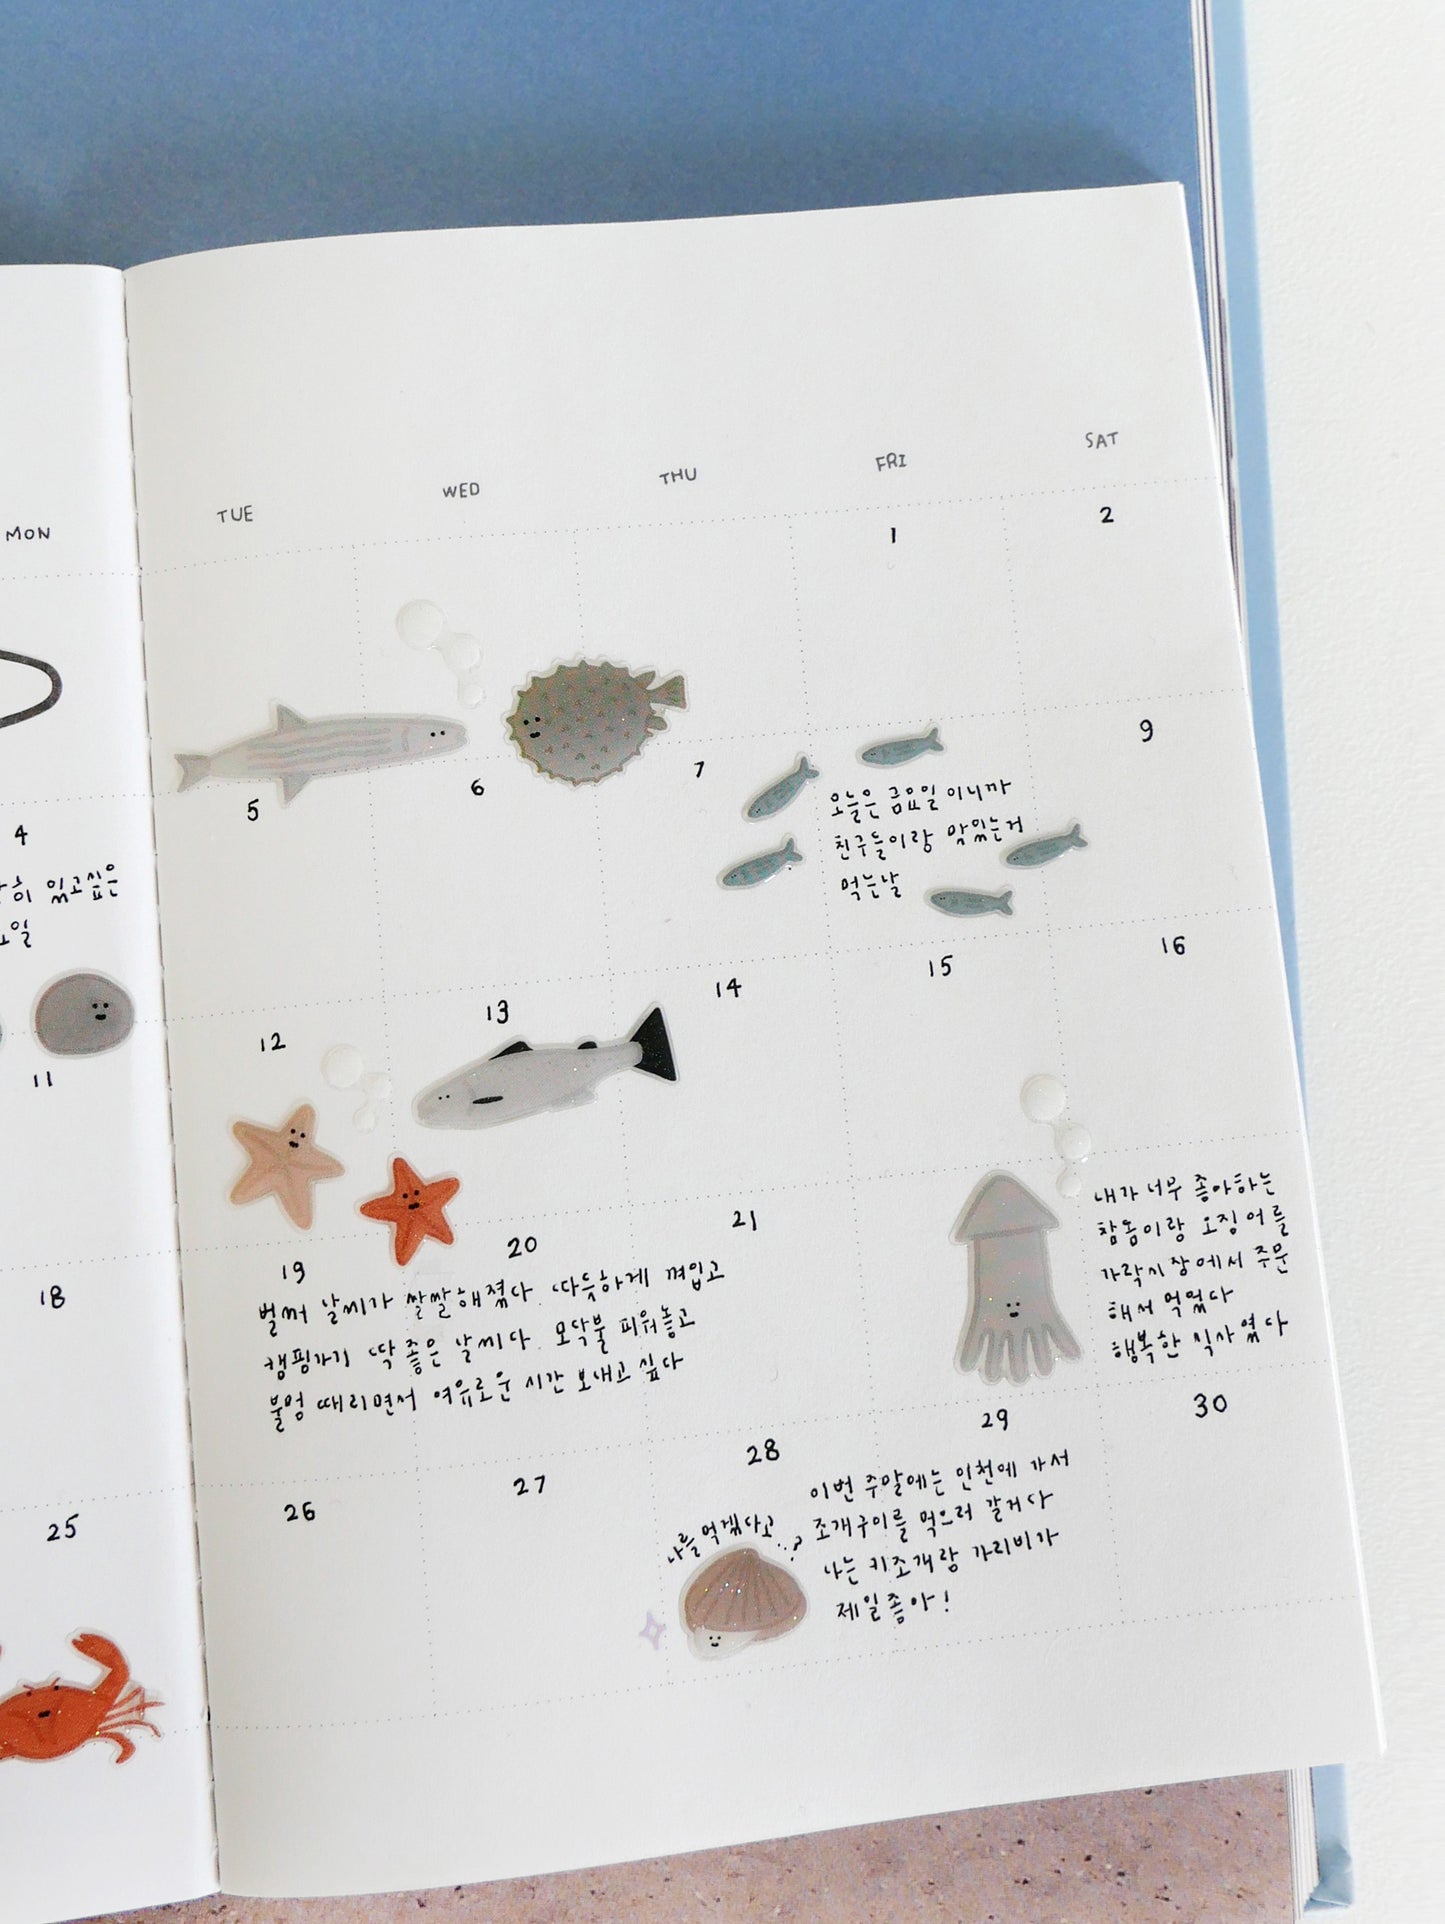 MON
TUE
WED
THU
FRI
SAT
1
2
4
5
6
7
9
히 잊고싶은
일
오늘은 금요일 이니까
친구들이랑 맛있는거
먹는날
11
12
13
14
15
16
18
19
20
21
벌써 날씨가 쌀쌀해졌다. 따듯하게 껴입고
캠핑가기 딱 좋은 날씨다. 모닥불 피워놓고
불멍 때리면서 여유로운 시간 보내고 싶다
내가 너무 좋아하는
참돔이랑 오징어를
가락시장에서 주문
해서 먹었다
행복한 식사였다
25
26
27
28
29
30
나를 먹겠다고...?
이번 주말에는 인천에 가서
조개구이를 먹으러 갈거다
나는 키조개랑 가리비가
제일좋아!